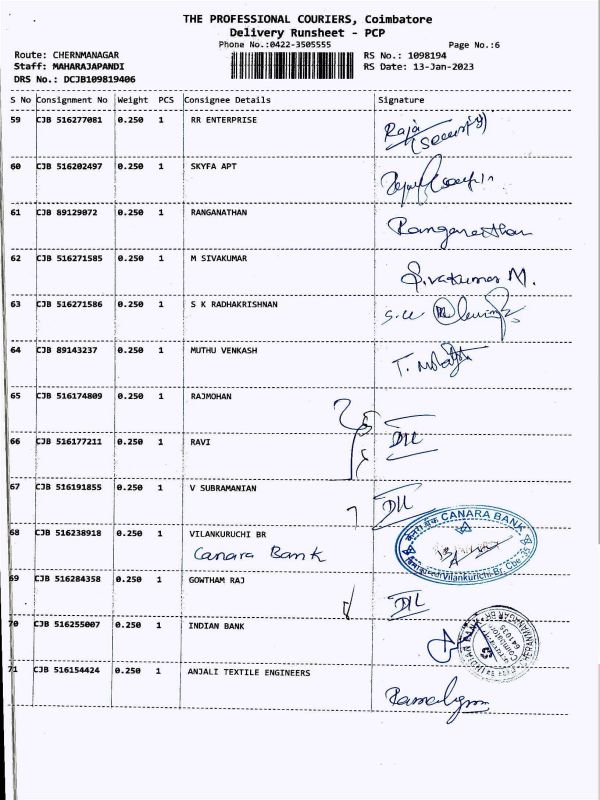 THE PROFESSIONAL COURIERS, Coimbatore
Delivery Runsheet - PCP
Phone No.:0422-3505555 Page No.:6
Route: CHERNMANAGAR RS No.: 1098194
Staff: MAHARAJAPANDI RS Date: 13-Jan-2023
DRS No.: DCJB109819406
S No Consignment No Weight PCS Consignee Details Signature
59 CJB 516277081 0.250 1 RR ENTERPRISE Raja
(Security)
60 CJB 516202497 0.250 1 SKYFA APT
61 CJB 89129072 0.250 1 RANGANATHAN Ranganathan
62 CJB 516271585 0.250 1 M SIVAKUMAR Sivakumar M.
63 CJB 516271586 0.250 1 S K RADHAKRISHNAN
64 CJB 89143237 0.250 1 MUTHU VENKASH
65 CJB 516174809 0.250 1 RAJMOHAN
66 CJB 516177211 0.250 1 RAVI DIL
67 CJB 516191855 0.250 1 V SUBRAMANIAN DIL
68 CJB 516238918 0.250 1 VILANKURUCHI BR केनरा बैंक CANARA BANK
Canara Bank Vilankurichi Br, Cbe-35
69 CJB 516284358 0.250 1 GOWTHAM RAJ DIL
70 CJB 516255007 0.250 1 INDIAN BANK
71 CJB 516154424 0.250 1 ANJALI TEXTILE ENGINEERS